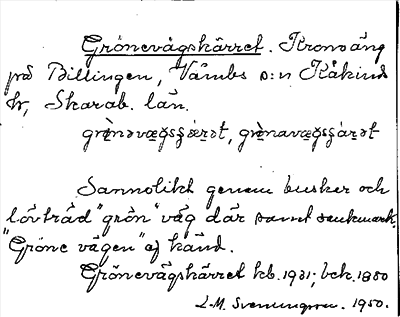 Grönevägskärret. Kronoäng
på Billingen, Våmbs s:n Kåkind
hr, Skarab. län.
grø̀nəvæǥsʒárət, grø̀navæǥsʒárət
Sannolikt genom busker och
lövträd "grön" väg där samt sankmark.
"Gröne vägen" ej känd.
Grönevägskärret hb. 1931; bck. 1880
L-M. Svenungsson. 1950.